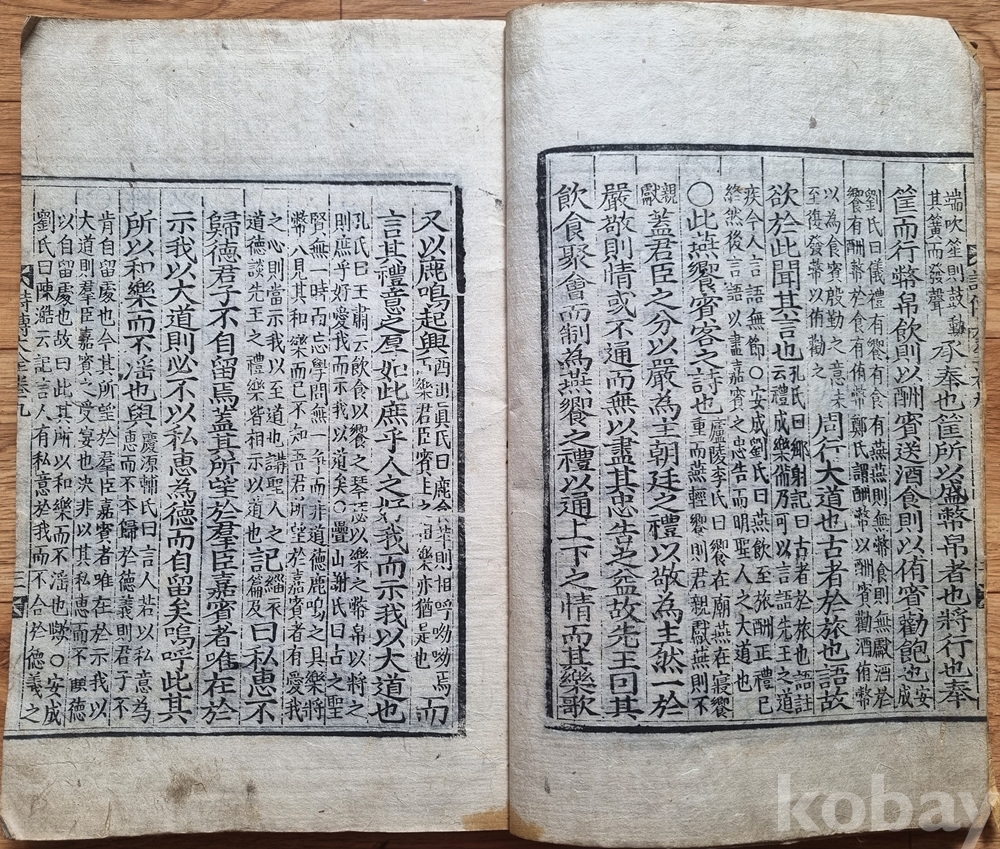 端吹笙則鼓動
其簧而發聲
承奉也筐所以盛幣帛者也將行也奉
筐而行幣帛飲則以酬賓送酒食則以侑賓勸飽也
安
成
劉氏曰儀禮有饗有食有燕燕則無幣食則無獻酒於
饗有酬幣於食有侑幣鄭氏謂酬幣以酬賓勸酒侑幣
以為食賓殷勤之意未
至復發幣以侑勸之
周行大道也古者於旅也語故
欲於此聞其言也
孔氏曰鄉射記曰古者於旅也語註
云禮成樂備乃可以言語先王之道
疾今人言語無節○安成劉氏曰燕飲至旅酬正禮已
終然後言語以盡嘉賓之忠告而明聖人之大道也
○此燕饗賓客之詩也
廬陵李氏曰饗在廟燕在寢饗
重而燕輕饗則君親獻燕則不
親
獻
蓋君臣之分以嚴為主朝廷之禮以敬為主然一於
嚴敬則情或不通而無以盡其忠告之益故先王因其
飲食聚會而制為燕饗之禮以通上下之情而其樂歌
又以鹿鳴起興
真氏曰鹿食苹則相呼呦呦焉
樂君臣賓主之相樂亦猶是也
而
言其禮意之厚如此庶乎人之好我而示我以大道也
孔氏曰王肅云飲食以饗之琴瑟以樂之幣帛以將之
則庶乎好愛我而示我以道矣○疊山謝氏曰古之聖
賢無一時而忘學問無一事而非道德鹿鳴之具樂將
幣人見其和樂而已不知吾君所望於嘉賓者有愛我
之心則當示我以至道也講聖人之
道德談先王之禮樂皆相示以道也
記
緇衣
篇
曰私惠不
歸德君子不自留焉蓋其所望於羣臣嘉賓者唯在於
示我以大道則必不以私惠為德而自留矣嗚呼此其
所以和樂而不淫也與
慶源輔氏曰言人若以私意為
惠而不本歸於德義則君子不
肯自留處也今其所望於羣臣嘉賓者唯在於示我以
大道則羣臣嘉賓之受宴也決非以其私惠而不顧德
以自留處也故曰此其所以和樂而不淫也歟○安成
劉氏曰陳澔云記言人有私意於我而不合於德義之
詩傳大全卷九
kobay